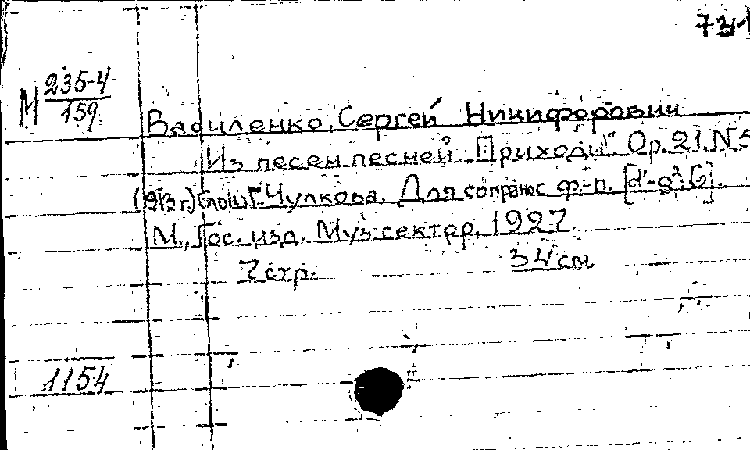 731
М 235-4
159
Василенко, Сергей Никифорович
Из песен песней "Приходи". Ор. 21. N 5
(1913 г.) Слова Г. Чулкова. Для сопрано с ф-п. [d'-g²; G].
М., Гос. изд. Муз. сектор, 1927
7 стр. 34 см
1154